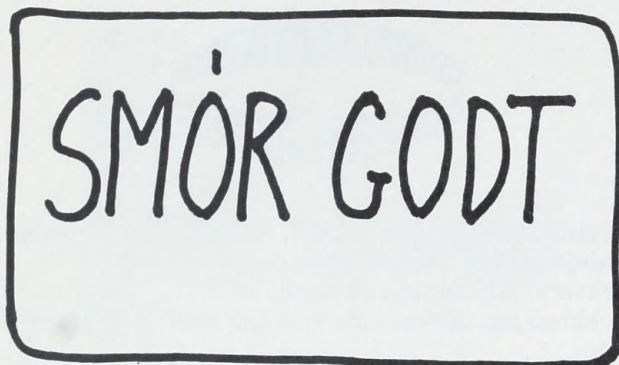 SMÓR GODT